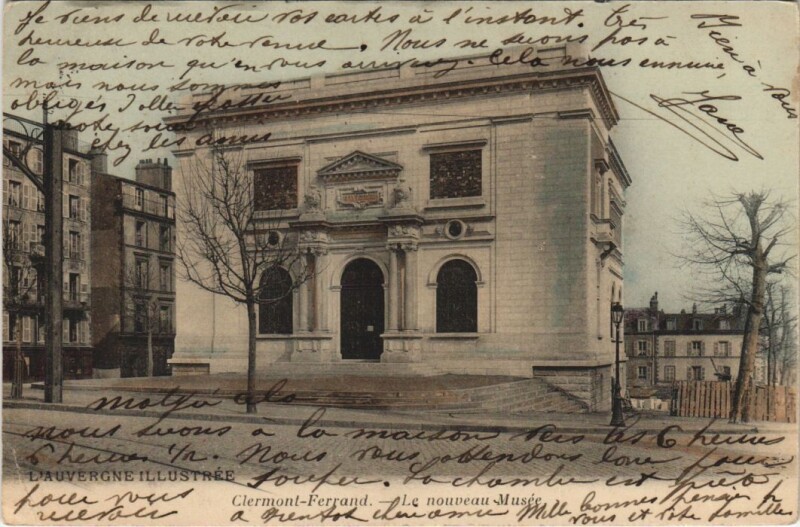 Je viens de recevoir vos cartes à l'instant. Très
heureuse de votre venue. Nous ne serons pas à
la maison qu'en vous arrivez. Cela nous ennuie,
mais nous sommes
obligés d'aller
notre
chez les amis
Bien à vous
Jane
malgré cela
nous serons à la maison vers les 6 heures
6 heures 1/2. Nous vous attendons donc pour
L'AUVERGNE ILLUSTRÉE
souper. La chambre est prête
pour vous
recevoir
Clermont-Ferrand. — Le nouveau Musée
à bientôt chère amie
Mille bonnes pensées pr
vous et votre famille